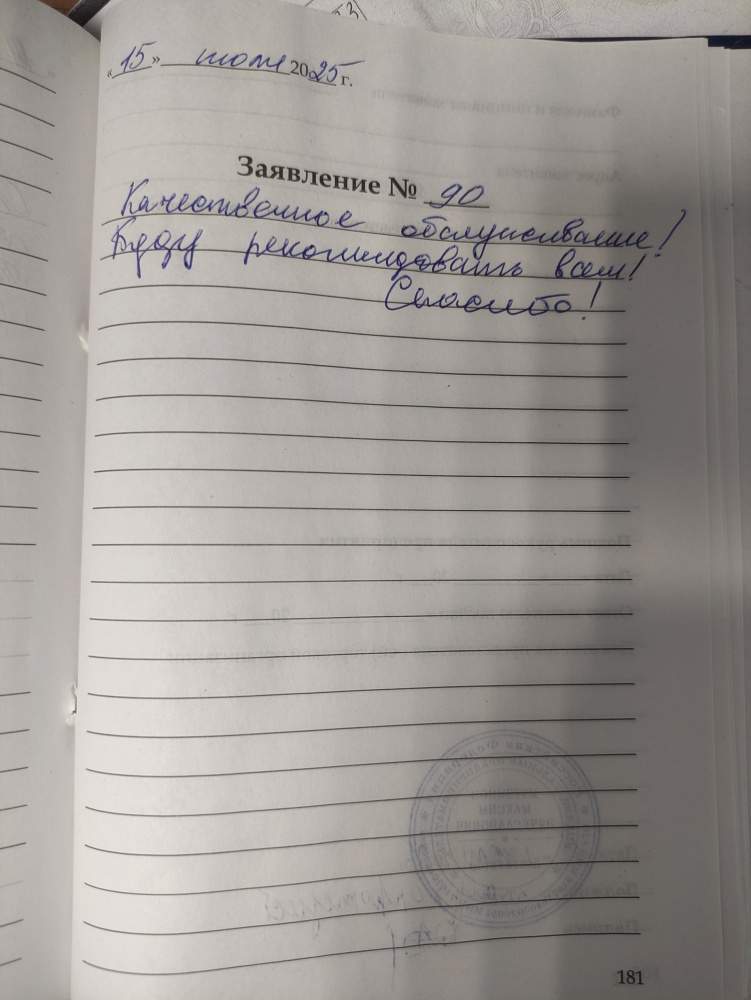 «15» июля 2025 г.
Заявление № 90
Качественное обслуживание!
Буду рекомендовать всем!
Спасибо!
181